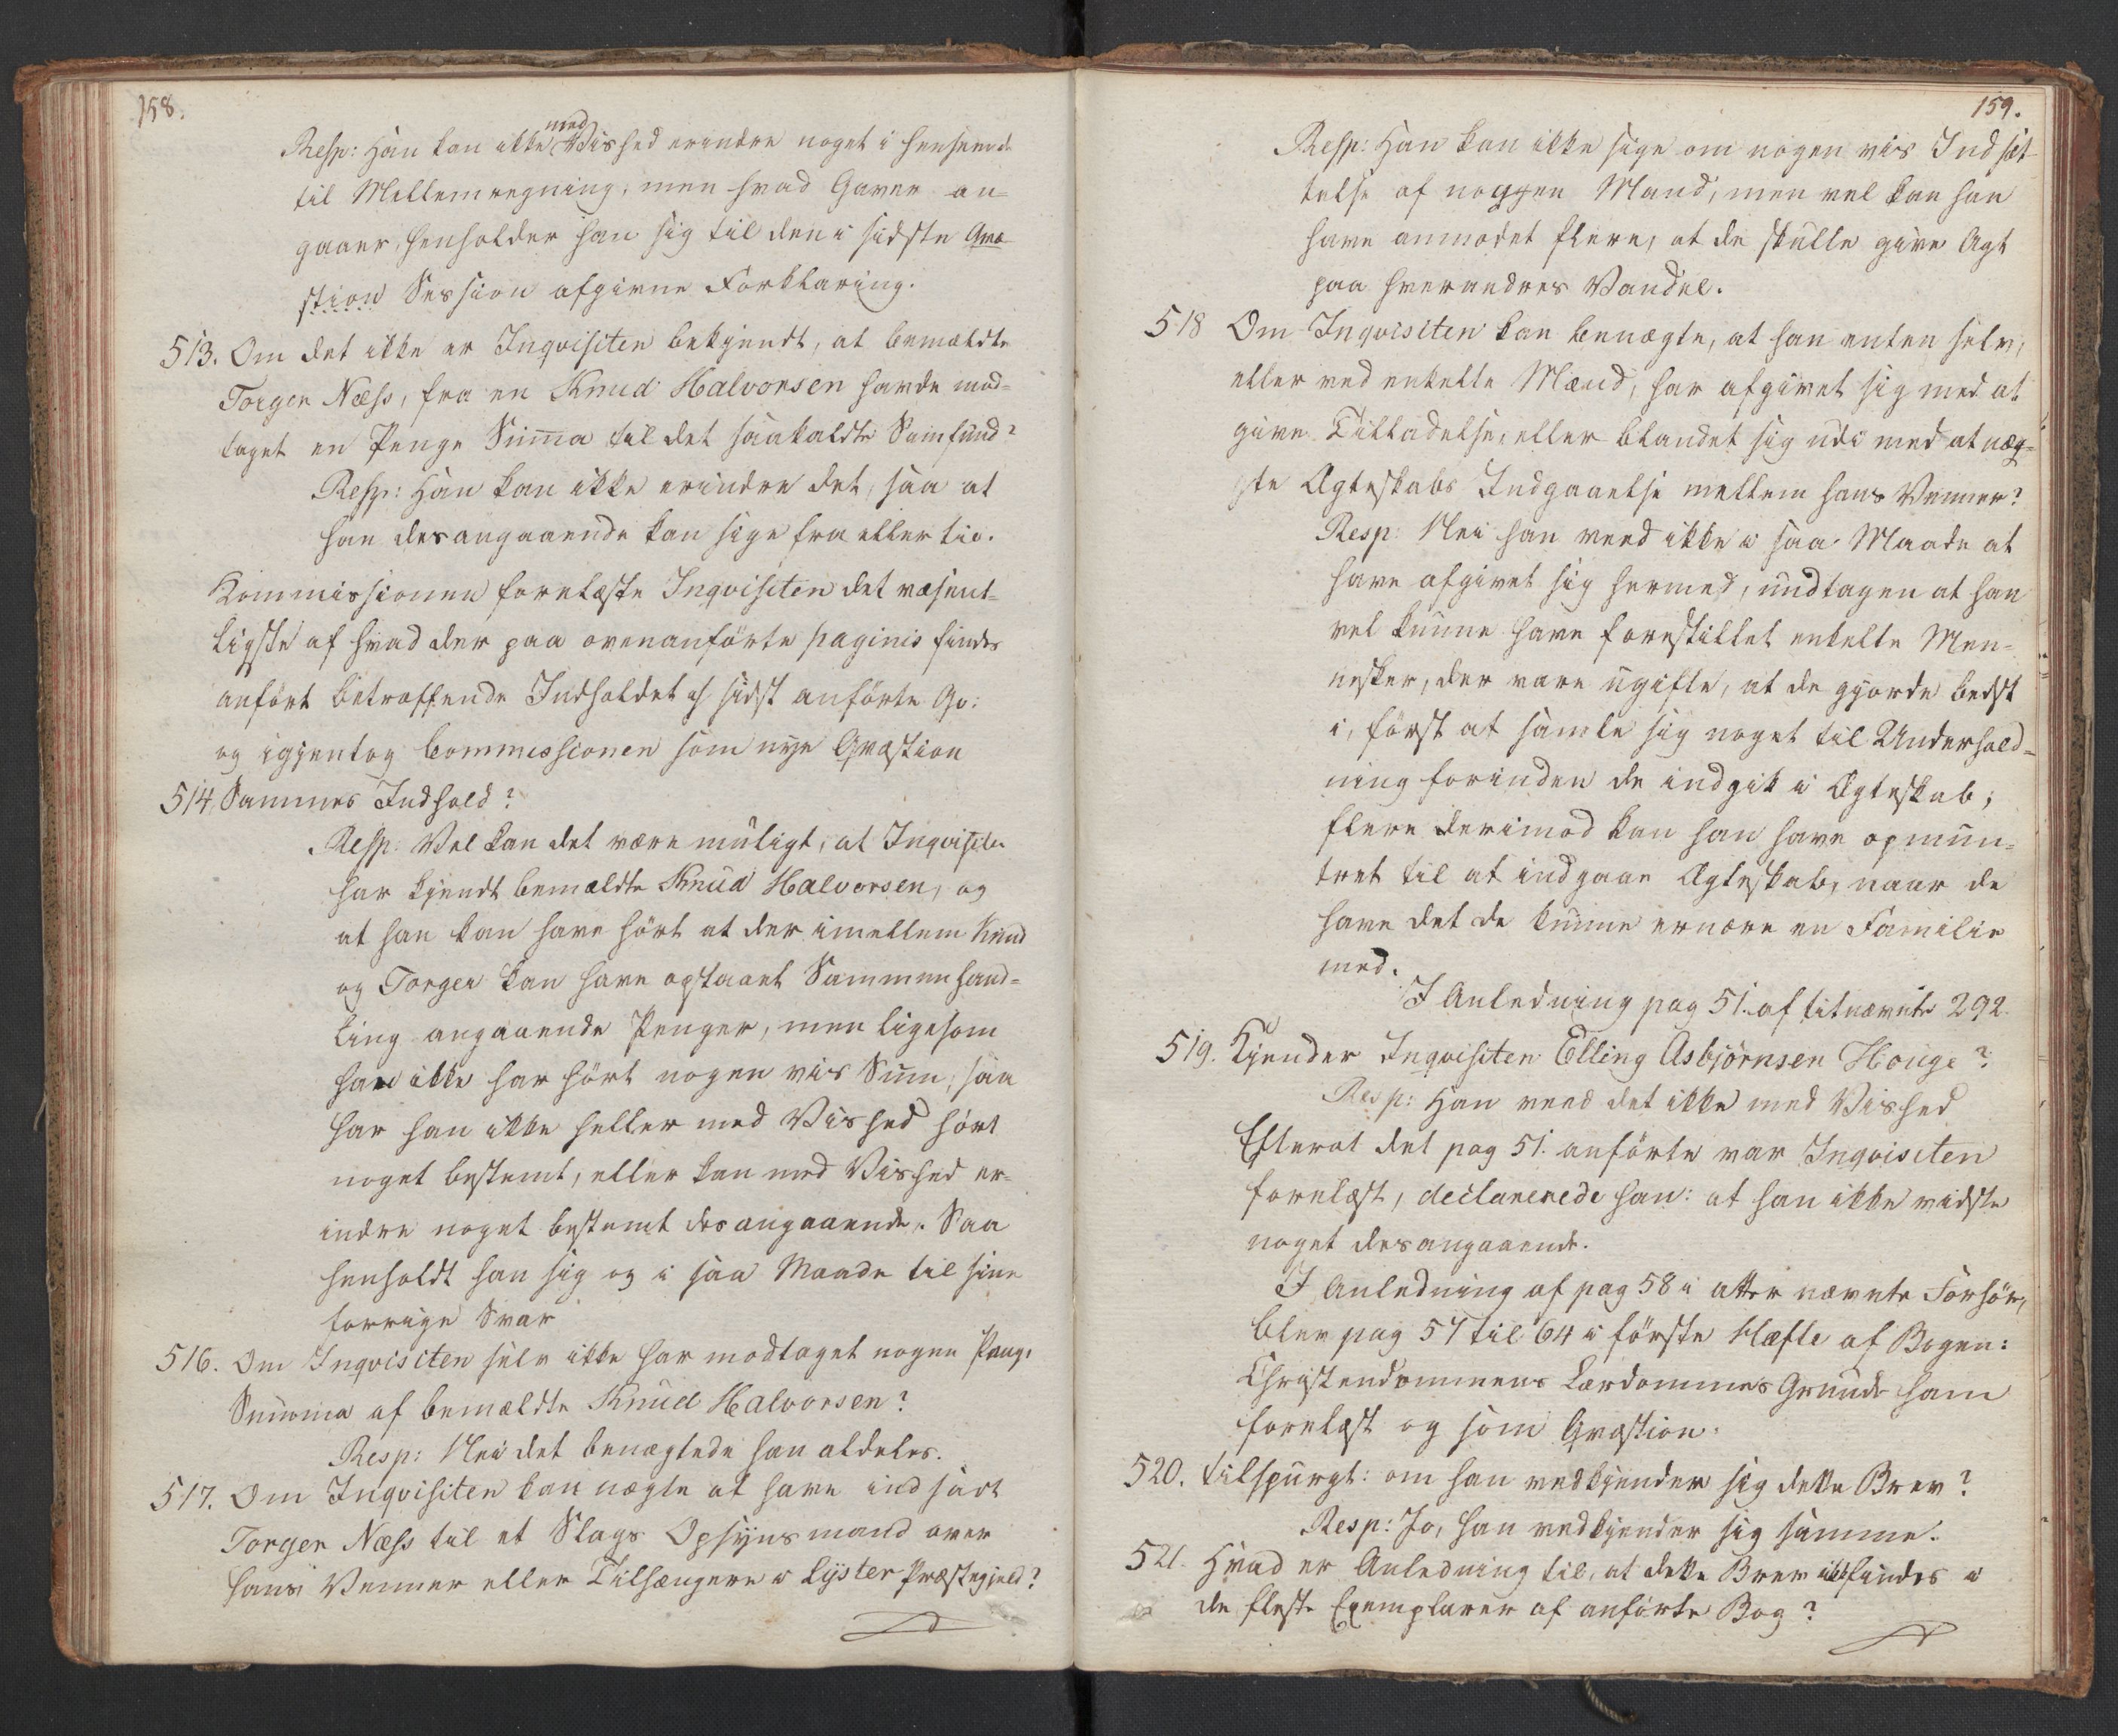 158.
Resp: Han kan ikke med Vished erindre noget i Henseende
til Mellemregning, men hvad Gaver an-
gaaer, henholder han sig til den i sidste Qvæ-
stion Session afgivne Forklaring.
513. Om det ikke er Inqvisiten bekjendt, at bemældte
Torger Næss, fra en Knud Halvorsen havde mod-
taget en Penge Summa til det saakaldte Samfund?
Resp: Han kan ikke erindre det, saa at
han desangaaende kan sige fra eller til.
Kommissionen forelæste Inqvisiten det væsent-
ligste af hvad der paa ovenanførte paginis findes
anført betræffende Indholdet af sidst anførte Qv:
og igjentog Commissionen som nye Qvæstion
514. Sammes Indhold?
Resp: Vel kan det være muligt, at Inqvisiten
har kjendt bemældte Knud Halvorsen, og
at han kan have hørt at der imellem Knud
og Torger kan have opstaaet Sammenhand-
ling angaaende Penger, men ligesom
han ikke har hørt nogen vis Sum, saa
har han ikke heller med Vished hørt
noget bestemt, eller kan med Vished er-
indre noget bestemt desangaaende. Saa
henholdt han sig og i saa Maade til sine
forrige Svar
516. Om Inqvisiten selv ikke har modtaget nogen Penge
Summa af bemældte Knud Halvorsen?
Resp: Nei det benægtede han aldeles.
517. Om Inqvisiten kan nægte at have indsadt
Torger Næss til et Slags Opsynsmand over
hans Venner eller Tilhængere i Lyster Præstegjeld?
159.
Resp: Han kan ikke sige om nogen vis Indsæt-
telse af noggen Mand, men vel kan han
have anmodet flere, at de skulle give Agt
paa hverandres Vandel.
518 Om Inqvisiten kan benægte, at han enten selv,
eller ved enkelte Mænd, har afgivet sig med at
give Tilladelse, eller blandet sig udi med at næg-
gte Ægteskabs Indgaaelse mellem hans Venner?
Resp: Nei han veed ikke i saa Maade at
have afgivet sig hermed, undtagen at han
vel kunne have forestillet enkelte Men-
nesker, der vare ugifte, at de gjorde bedst
i, først at samle sig noget til Underhold-
ning forinden de indgik i Ægteskab;
flere derimod kan han have opmun-
tret til at indgaae Ægteskab, naar de
have det de kunne ernære en Familie
med.
I Anledning pag 51. af titnævnte 292.
519. Kjender Inqvisiten Elling Asbjørnsen Houge?
Resp: Han veed det ikke med Vished
Efterat det pag 51. anførte var Inqvisiten
forelæst, declarerede han: at han ikke vidste
noget desangaaende.
I Anledning af pag 58 i atter nævnte Forhør,
blev pag 57 til 64 i første Hæfte af Bogen:
Christendommens Lærdommes Grunde ham
forelæst og som Qvæstion.
520. tilspurgt: om han vedkjender sig dette Brev?
Resp: Jo, han vedkjender sig samme.
521. Hvad er Anledning til, at dette Brev ikke findes i
de fleste Exemplarer af anførte Bog?